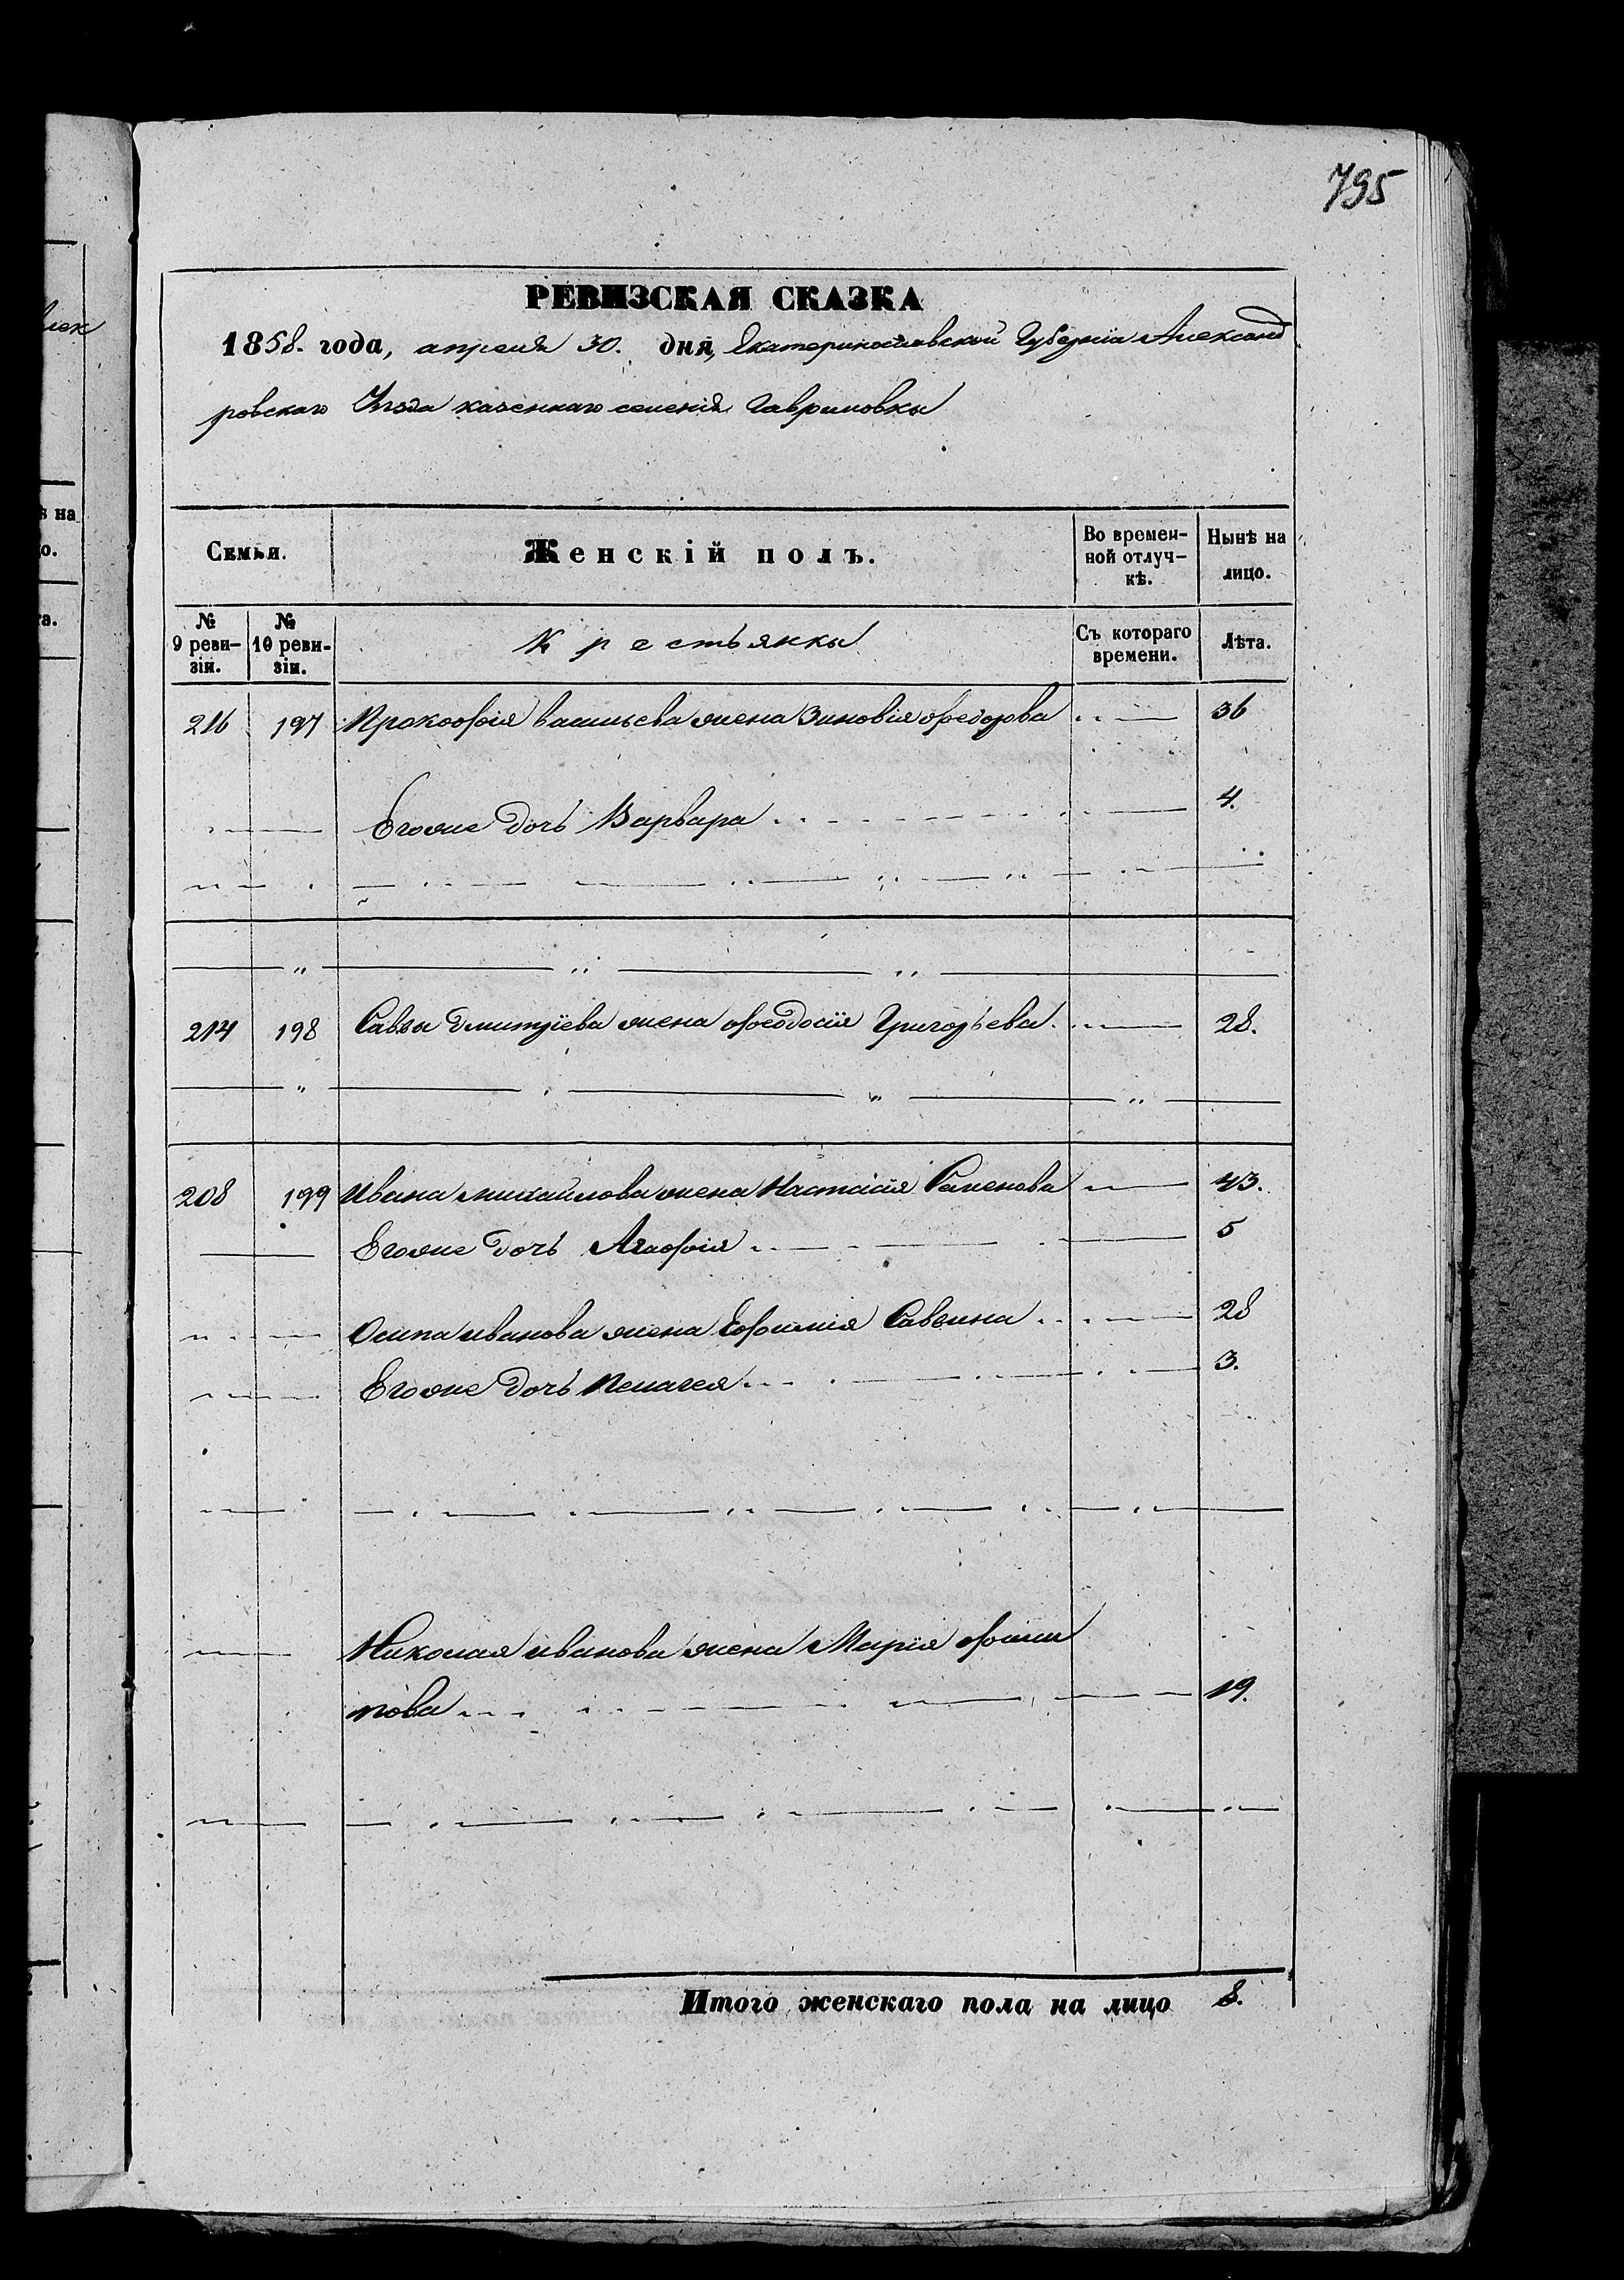 795
РЕВИЗСКАЯ СКАЗКА
1858. года, апреля 30. дня, Екатеринославской Губерніи Александ
ровскаго Уѣзда казеннаго селенія Гавриловки
Семьи. Женскій полъ. Во времен-
ной отлуч-
кѣ. Нынѣ на
лицо.
№
9 реви-
зіи. №
10 реви-
зіи. Крестьянки Съ котораго
времени. Лѣта.
216 197 Прокофія васильева жена Зиновія федорова 36
Егоже дочь Варвара 4.
214 198 Саввы Дмитріева жена феодосія Григорьева. 28.
208 199 Ивана михайлова жена Настасія Семенова 43.
Егоже дочь Агафія 5
Осипа иванова жена Ефимія Саввина 28
Егоже дочь Пелагея 3.
Николая иванова жена Марія фили
пова 19.
Итого женскаго пола на лицо 8.
на
о.
а.